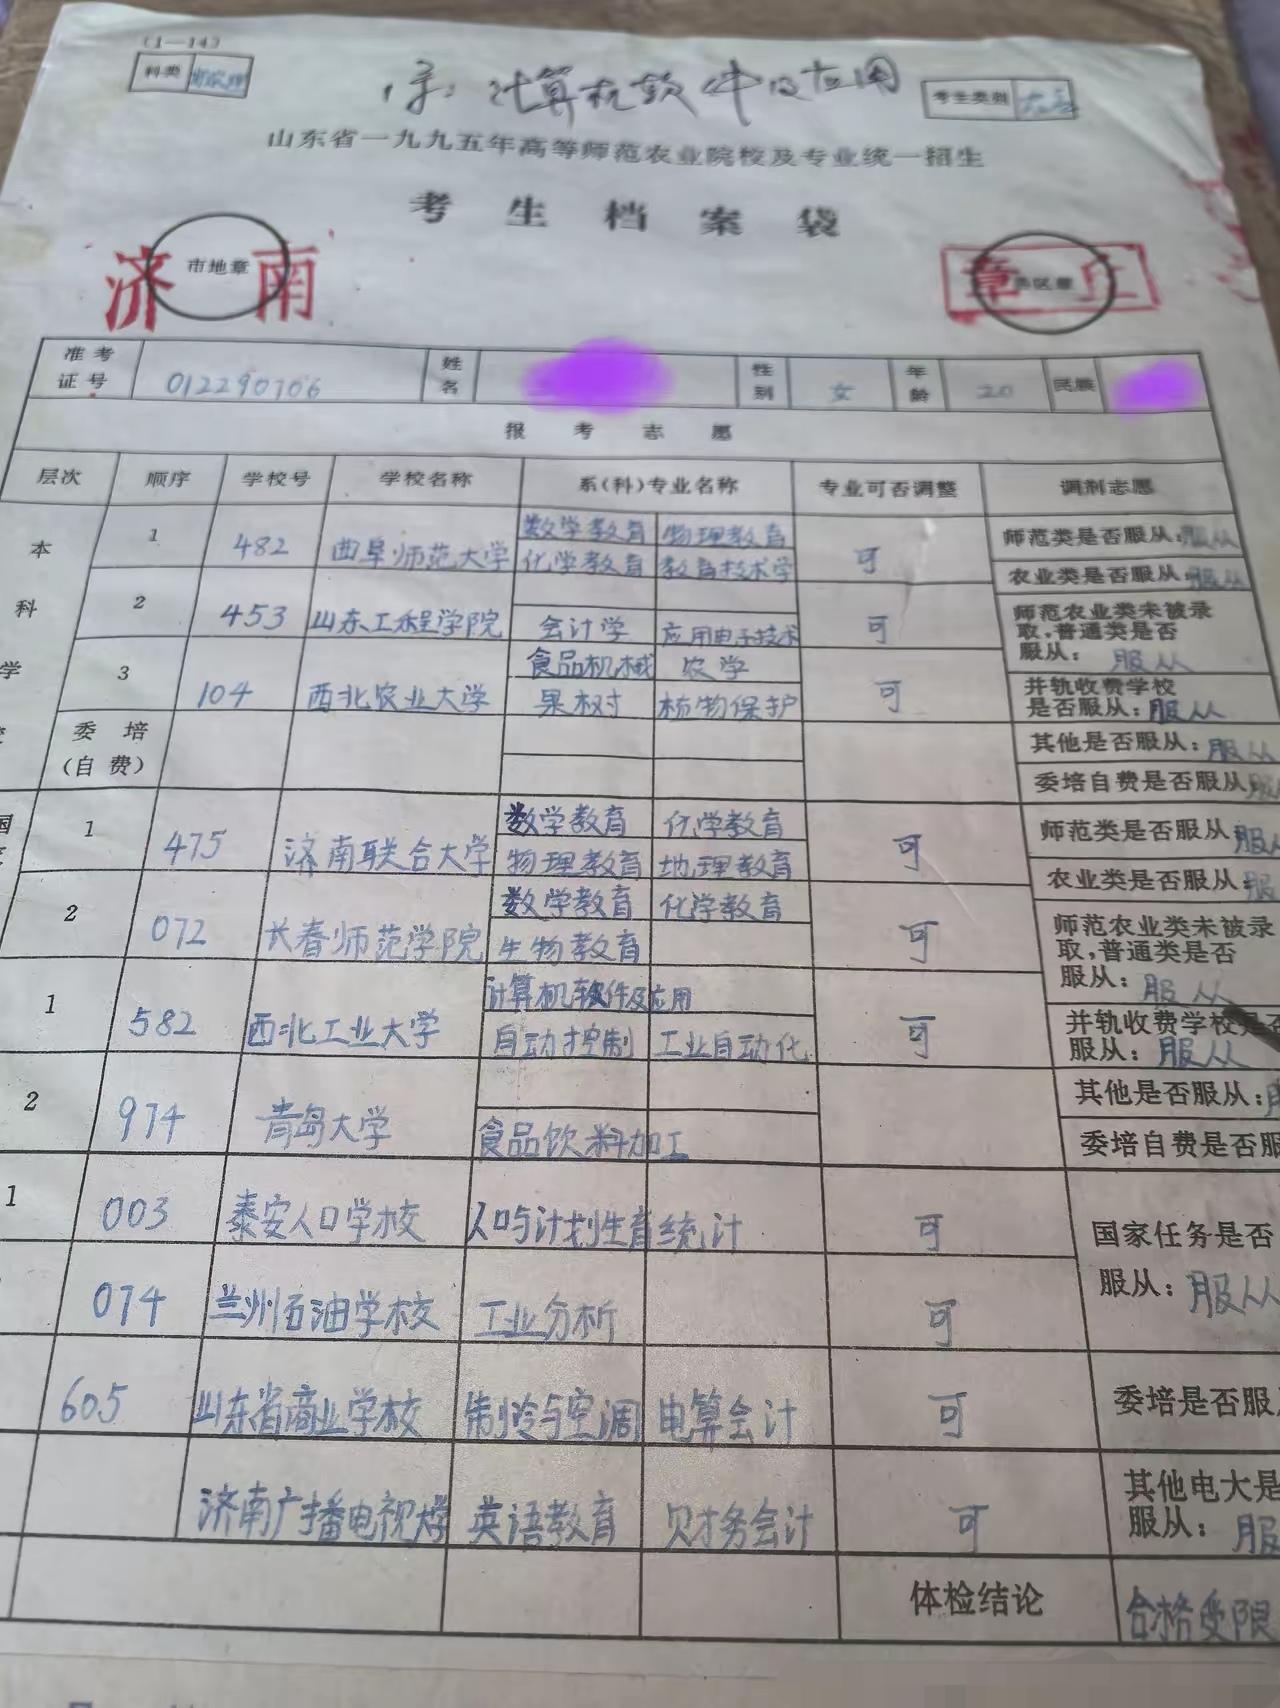 (1—14)
科类
计算机软件及应用
考生类别
山东省一九九五年高等师范农业院校及专业统一招生
考生档案袋
济南 市地章
章丘 县区章
准考证号 012290706 姓名 性别 女 年龄 20 民族
报考志愿
层次 顺序 学校号 学校名称 系(科)专业名称 专业可否调整 调剂志愿
本科
1 482 曲阜师范大学 数学教育 物理教育 化学教育 教育技术学 可
师范类是否服从:服从
农业类是否服从:服从
2 453 山东工程学院 会计学 应用电子技术 可
师范农业类未被录取,普通类是否服从: 服从
3 104 西北农业大学 食品机械 农学 果树 植物保护 可
并轨收费学校是否服从:服从
委培(自费)
其他是否服从:服从
委培自费是否服从
1 475 济南联合大学 数学教育 化学教育 物理教育 地理教育 可
师范类是否服从:服
农业类是否服从:服
2 072 长春师范学院 数学教育 化学教育 生物教育 可
师范农业类未被录取,普通类是否服从: 服从
1 582 西北工业大学 计算机软件及应用 自动控制 工业自动化 可
并轨收费学校是否服从: 服从
2 974 青岛大学 食品饮料加工
其他是否服从:
委培自费是否服
1 003 泰安人口学校 人口与计划生育统计 可
国家任务是否服从: 服从
074 兰州石油学校 工业分析 可
605 山东省商业学校 制冷与空调 电算会计 可
委培是否服
济南广播电视大学 英语教育 财务会计 可
其他电大是
服从: 服
体检结论 合格受限